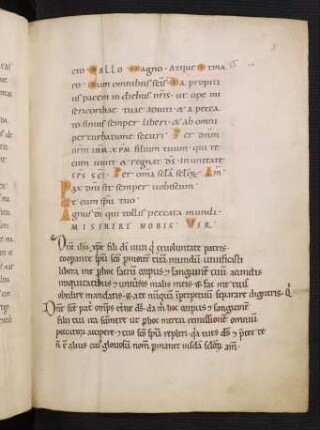 cto GALLO Magno. Atque Otma
ro. cum omnibus scis. Da propiti
us pacem in diebus nris. ut ope mi
sericordiae tuae adiuti & a pecca
to simus semper liberi & ab omni
perturbatione securi. Per dnm
nrm ihm xpm filium tuum. qui te
cum uiuit & regnat ds. In unitate
sps sci. Per oma scla sclorum. Am
Pax dni sit semper uobiscum
Et cum spu tuo
Agnus di qui tollis peccata mundi.
MISERERE NOBIS VIR.
Dne ihu xpe fili di uiui q ex uoluntate patris
cooperante spu sco p morte tua mundu uiuificasti
libera me p hoc sacru corpus & sanguine tuu a cunctis
iniquitatibus & uniuersis malis meis & fac me tuis
obedire mandatis & a te nunqua inperpetuu separare digneris. Q
Dne sce pat omps etne ds. da m hoc corpus & sanguine
filii tui ita sumere ut p hoc merear remissione omniu
peccatoru accipere & tuo sco spu repleri. qa tu es ds & preter te
n e alius cui gloriosu nom pmanet in scla sclor. am.